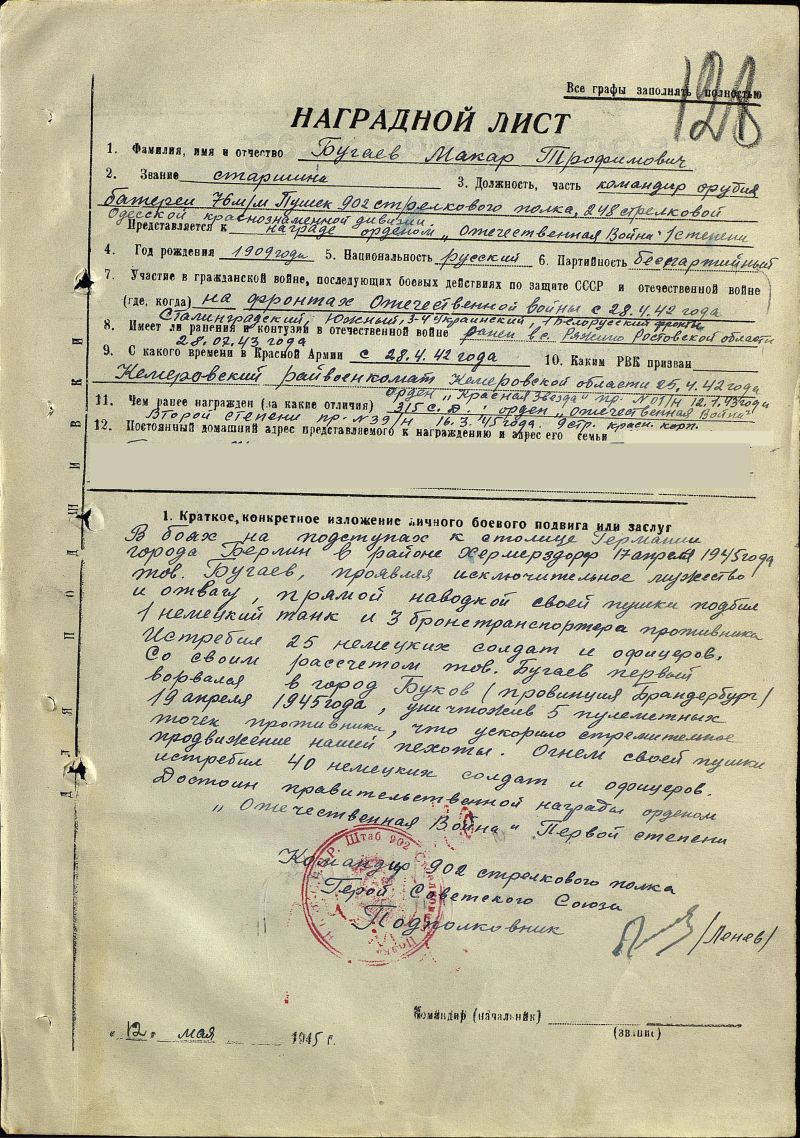 128
Все графы заполнять полностью
НАГРАДНОЙ ЛИСТ
1. Фамилия, имя и отчество Бугаев Макар Трофимович
2. Звание старшина 3. Должность, часть командир орудия
батереи 76 м/м Пушек 902 стрелкового полка, 248 стрелковой
Одесской краснознаменной дивизии.
Представляется к награде орденом „Отечественная Война" 1 степени
4. Год рождения 1909 года 5. Национальность русский 6. Партийность беспартийный
7. Участие в гражданской войне, последующих боевых действиях по защите СССР и отечественной войне
(где, когда) на фронтах Отечественной войны с 28.4.42 года
Сталинградский, Южный, 3-4 Украинский, 1 Белорусский фронты
8. Имеет ли ранения и контузии в отечественной войне ранен в с. Ряжено Ростовской области
28.02.43 года
9. С какого времени в Красной Армии с 28.4.42 года 10. Каким РВК призван
Кемеровский райвоенкомат Кемеровской области 25.4.42 года
орден „Красная Звезда" пр. №01/н 12.1.43 года
11. Чем ранее награжден (за какие отличия) 315 с.д. орден „Отечественная Война"
Второй степени пр. №39/н 16.3.45 года. 9 стр. красн. корп.
12. Постоянный домашний адрес представляемого к награждению и адрес его семьи
ДЛЯ ПОДШИВКИ
1. Краткое, конкретное изложение личного боевого подвига или заслуг
В боях на подступах к столице Германии
города Берлин в районе Хермерздорф 17 апреля 1945 года
тов. Бугаев, проявляя исключительное мужество
и отвагу, прямой наводкой своей пушки подбил
1 немецкий танк и 3 бронетранспортера противника
Истребил 25 немецких солдат и офицеров.
Со своим рассчетом тов. Бугаев первый
ворвался в город Буков /провинция Брандербург/
19 апреля 1945 года, уничтожив 5 пулеметных
точек противника, что ускорило стремительное
продвижение нашей пехоты. Огнем своей пушки
истребил 40 немецких солдат и офицеров.
Достоин правительственной награды орденом
„Отечественная Война" Первой степени
Командир 902 стрелкового полка
Герой Советского Союза
Подполковник /Ленев/
Штаб 902 Стрелков
Полка
Командир (начальник)
(звание)
„12" мая 1945 г.